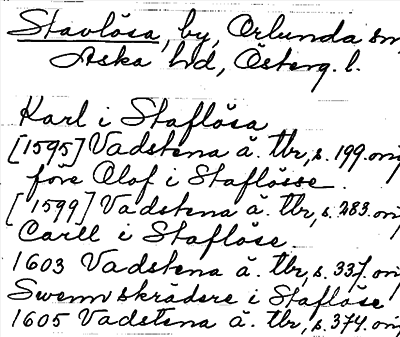 Stavlösa, by, Orlunda sn,
Aska hd, Österg. l.
Karl i Staflösa
[1595] Vadstena ä. tbr, s. 199. orig
före Olof i Staflösse.
[1599] Vadstena ä. tbr, s. 283. orig
Carll i Staflöse
1603 Vadstena ä. tbr, s. 337. orig
Swenn skrädere i Staflöse
1605 Vadstena ä. tbr, s. 374. orig